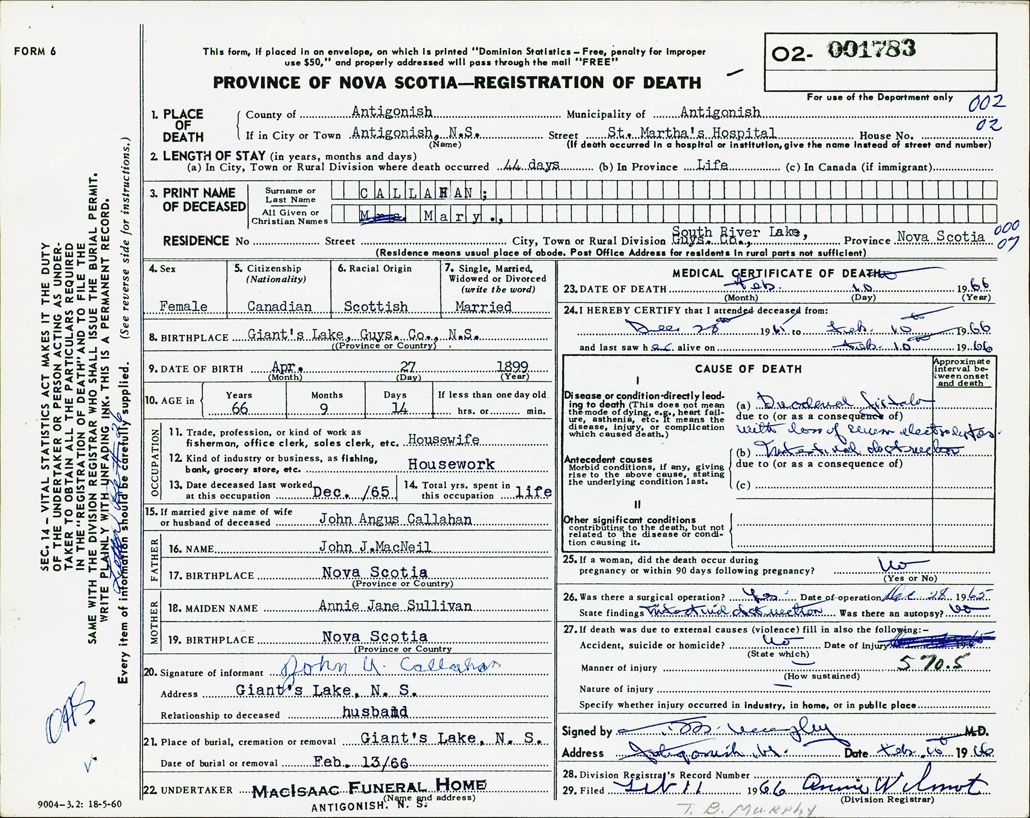 FORM 6
This form, if placed in an envelope, on which is printed "Dominion Statistics – Free, penalty for improper
use $50," and properly addressed will pass through the mail "FREE"
PROVINCE OF NOVA SCOTIA—REGISTRATION OF DEATH
02- 001783
For use of the Department only
002
02
1. PLACE OF DEATH
County of Antigonish Municipality of Antigonish
If in City or Town Antigonish, N.S. Street St. Martha's Hospital House No.
(Name) (If death occurred in a hospital or institution, give the name instead of street and number)
2. LENGTH OF STAY (in years, months and days)
(a) In City, Town or Rural Division where death occurred 44 days (b) In Province Life (c) In Canada (if immigrant)
3. PRINT NAME OF DECEASED
Surname or Last Name CALLAHAN;
All Given or Christian Names Mrs. Mary.,
South River Lake,
RESIDENCE No Street City, Town or Rural Division Guys. Co., Province Nova Scotia
000
07
(Residence means usual place of abode. Post Office Address for residents in rural parts not sufficient)
4. Sex
Female
5. Citizenship
(Nationality)
Canadian
6. Racial Origin
Scottish
7. Single, Married,
Widowed or Divorced
(write the word)
Married
8. BIRTHPLACE Giant's Lake, Guys. Co., N.S.
(Province or Country)
9. DATE OF BIRTH Apr. 27 1899
(Month) (Day) (Year)
10. AGE in Years Months Days If less than one day old
66 9 14 hrs. or min.
OCCUPATION
11. Trade, profession, or kind of work as
fisherman, office clerk, sales clerk, etc. Housewife
12. Kind of industry or business, as fishing,
bank, grocery store, etc. Housework
13. Date deceased last worked
at this occupation Dec. /65
14. Total yrs. spent in
this occupation life
15. If married give name of wife
or husband of deceased John Angus Callahan
FATHER
16. NAME John J.MacNeil
17. BIRTHPLACE Nova Scotia
(Province or Country)
MOTHER
18. MAIDEN NAME Annie Jane Sullivan
19. BIRTHPLACE Nova Scotia
(Province or Country)
20. Signature of informant John A. Callahan
Address Giant's Lake, N. S.
Relationship to deceased husband
21. Place of burial, cremation or removal Giant's Lake, N. S.
Date of burial or removal Feb. 13/66
22. UNDERTAKER MACISAAC FUNERAL HOME
(Name and address)
ANTIGONISH, N. S.
MEDICAL CERTIFICATE OF DEATH
23. DATE OF DEATH Feb. 10 1966
(Month) (Day) (Year)
24. I HEREBY CERTIFY that I attended deceased from:
Dec 28th 1965 to Feb. 10 1966
and last saw her alive on Feb. 10 1966
CAUSE OF DEATH
Approximate
interval be-
tween onset
and death
I
Disease or condition directly lead-
ing to death (This does not mean
the mode of dying, e.g., heart fail-
ure, asthenia, etc. It means the
disease, injury, or complication
which caused death.)
(a) Duodenal fistula
due to (or as a consequence of)
with loss of serum electrolytes.
Antecedent causes
Morbid conditions, if any, giving
rise to the above cause, stating
the underlying condition last.
(b) Intestinal obstruction
due to (or as a consequence of)
(c)
II
Other significant conditions
contributing to the death, but not
related to the disease or condi-
tion causing it.
25. If a woman, did the death occur during
pregnancy or within 90 days following pregnancy? No
(Yes or No)
26. Was there a surgical operation? Yes. Date of operation Dec. 28 1965
State findings Intestinal obstruction Was there an autopsy? No
27. If death was due to external causes (violence) fill in also the following:-
Accident, suicide or homicide? No Date of injury 19
(State which)
Manner of injury — 570.5
(How sustained)
Nature of injury —
Specify whether injury occurred in industry, in home, or in public place
Signed by M.D.
Address Antigonish N.S. Date Feb. 10 1966
28. Division Registrar's Record Number
29. Filed Feb 11 1966 Annie Wilmot
(Division Registrar)
T. B. MURPHY
SEC. 14 – VITAL STATISTICS ACT MAKES IT THE DUTY
OF THE UNDERTAKER OR PERSON ACTING AS UNDER-
TAKER TO OBTAIN ALL THE PARTICULARS REQUIRED
IN THE "REGISTRATION OF DEATH" AND TO FILE THE
SAME WITH THE DIVISION REGISTRAR WHO SHALL ISSUE THE BURIAL PERMIT.
WRITE PLAINLY WITH UNFADING INK. THIS IS A PERMANENT RECORD.
Every item of information should be carefully supplied. (See reverse side for instructions.)
9004-3.2: 18-5-60